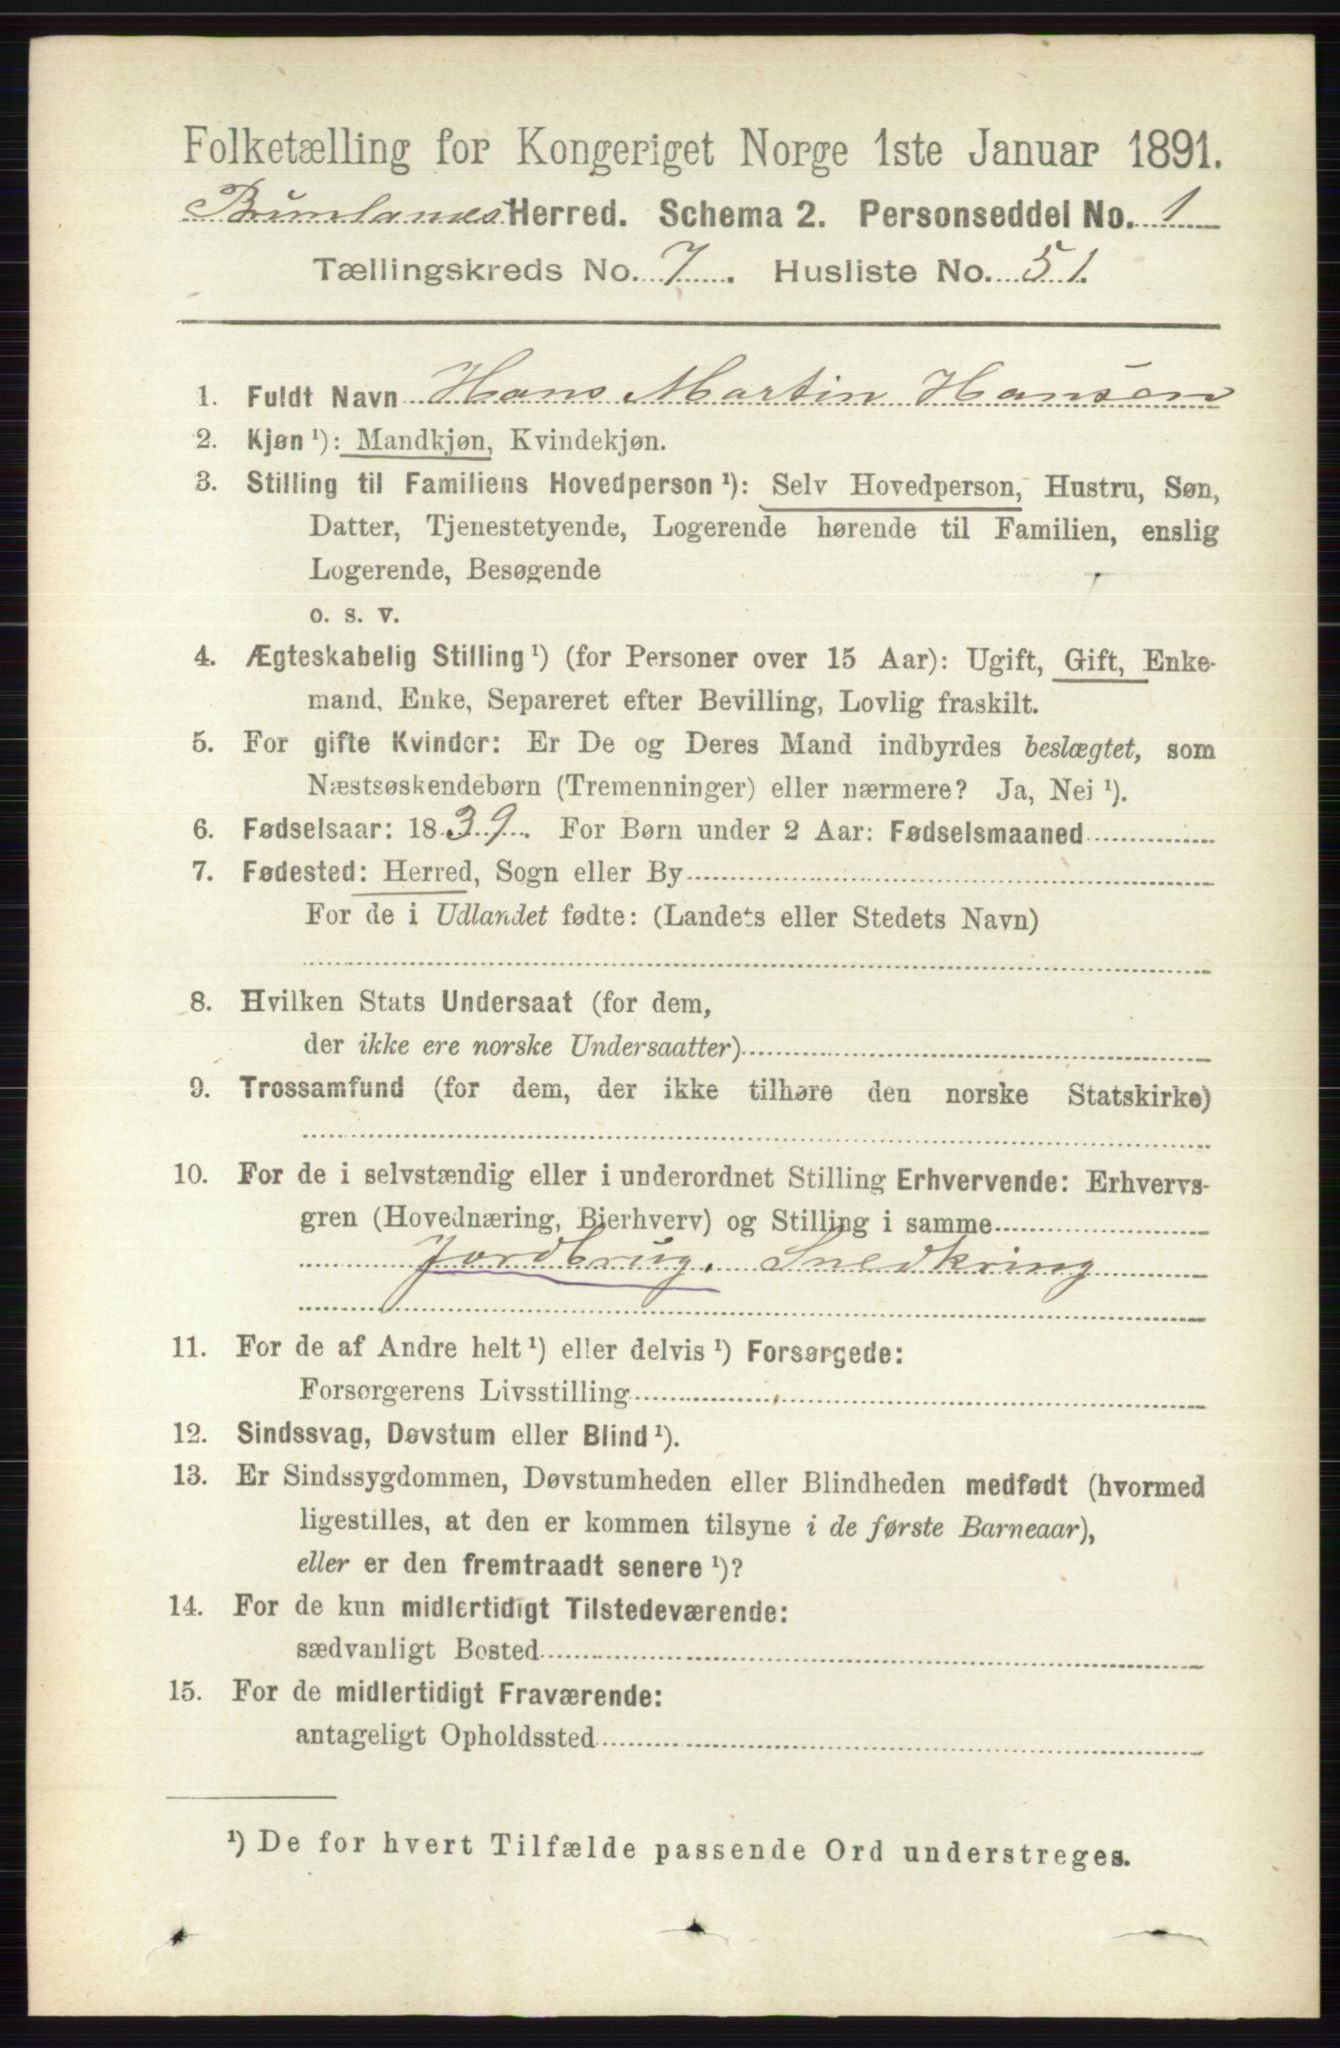 Folketælling for Kongeriget Norge 1ste Januar 1891.
Brunlanes Herred. Schema 2. Personseddel No. 1
Tællingskreds No. 7. Husliste No. 51.
1. Fuldt Navn Hans Martin Hansen
2. Kjøn ¹): Mandkjøn, Kvindekjøn.
3. Stilling til Familiens Hovedperson ¹): Selv Hovedperson, Hustru, Søn,
Datter, Tjenestetyende, Logerende hørende til Familien, enslig
Logerende, Besøgende
o. s. v.
4. Ægteskabelig Stilling ¹) (for Personer over 15 Aar): Ugift, Gift, Enke-
mand, Enke, Separeret efter Bevilling, Lovlig fraskilt.
5. For gifte Kvinder: Er De og Deres Mand indbyrdes beslægtet, som
Næstsøskendebørn (Tremenninger) eller nærmere? Ja, Nei ¹).
6. Fødselsaar: 1839. For Børn under 2 Aar: Fødselsmaaned
7. Fødested: Herred, Sogn eller By
For de i Udlandet fødte: (Landets eller Stedets Navn)
8. Hvilken Stats Undersaat (for dem,
der ikke ere norske Undersaatter)
9. Trossamfund (for dem, der ikke tilhøre den norske Statskirke)
10. For de i selvstændig eller i underordnet Stilling Erhvervende: Erhvervs-
gren (Hovednæring, Bierhverv) og Stilling i samme
Jordbrug. Snedkring
11. For de af Andre helt ¹) eller delvis ¹) Forsørgede:
Forsørgerens Livsstilling
12. Sindssvag, Døvstum eller Blind ¹).
13. Er Sindssygdommen, Døvstumheden eller Blindheden medfødt (hvormed
ligestilles, at den er kommen tilsyne i de første Barneaar),
eller er den fremtraadt senere ¹)?
14. For de kun midlertidigt Tilstedeværende:
sædvanligt Bosted
15. For de midlertidigt Fraværende:
antageligt Opholdssted
¹) De for hvert Tilfælde passende Ord understreges.